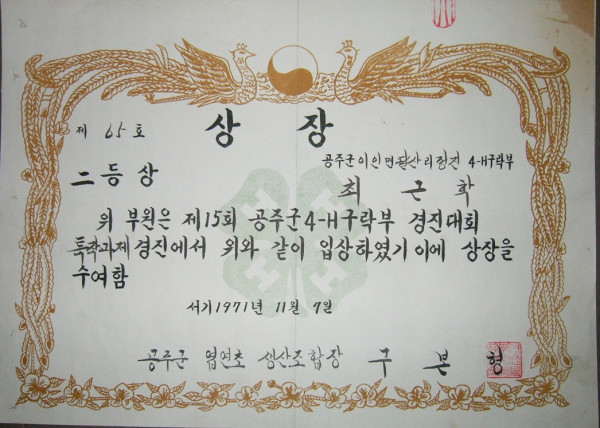 상 장
제 65 호
공주군 이인면 달산리 정진 4-H구락부
二등상
최 근 학
위 부원은 제15회 공주군4-H구락부 경진대회
특작과제 경진에서 위와 같이 입상하였기 이에 상장을
수여함
서기 1971년 11월 7일
공주군 엽연초 생산조합장 구 본 형
H H H H